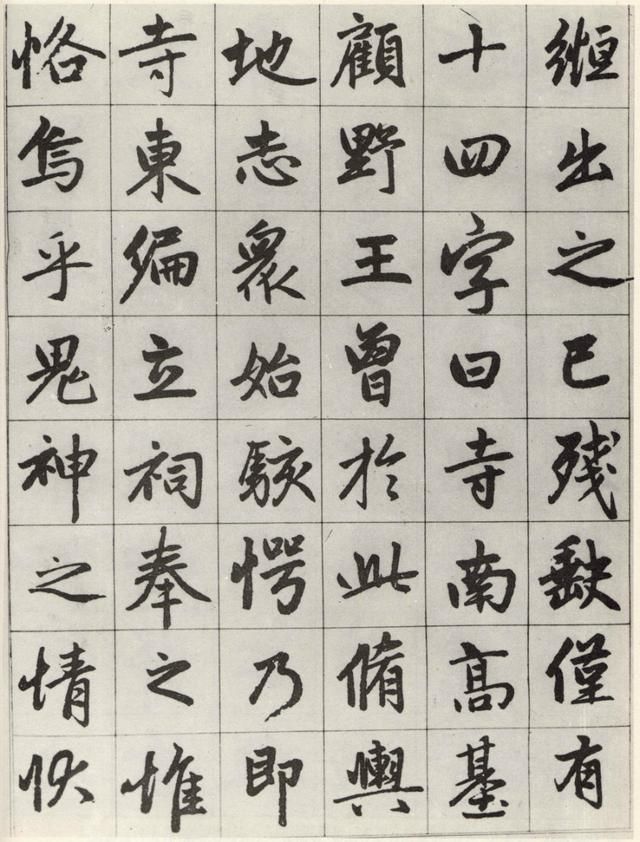 縆出之已殘缺僅有
十四字曰寺南高基
顧野王曾於此脩輿
地志眾始駭愕乃即
寺東偏立祠奉之惟
恪烏乎鬼神之情狀